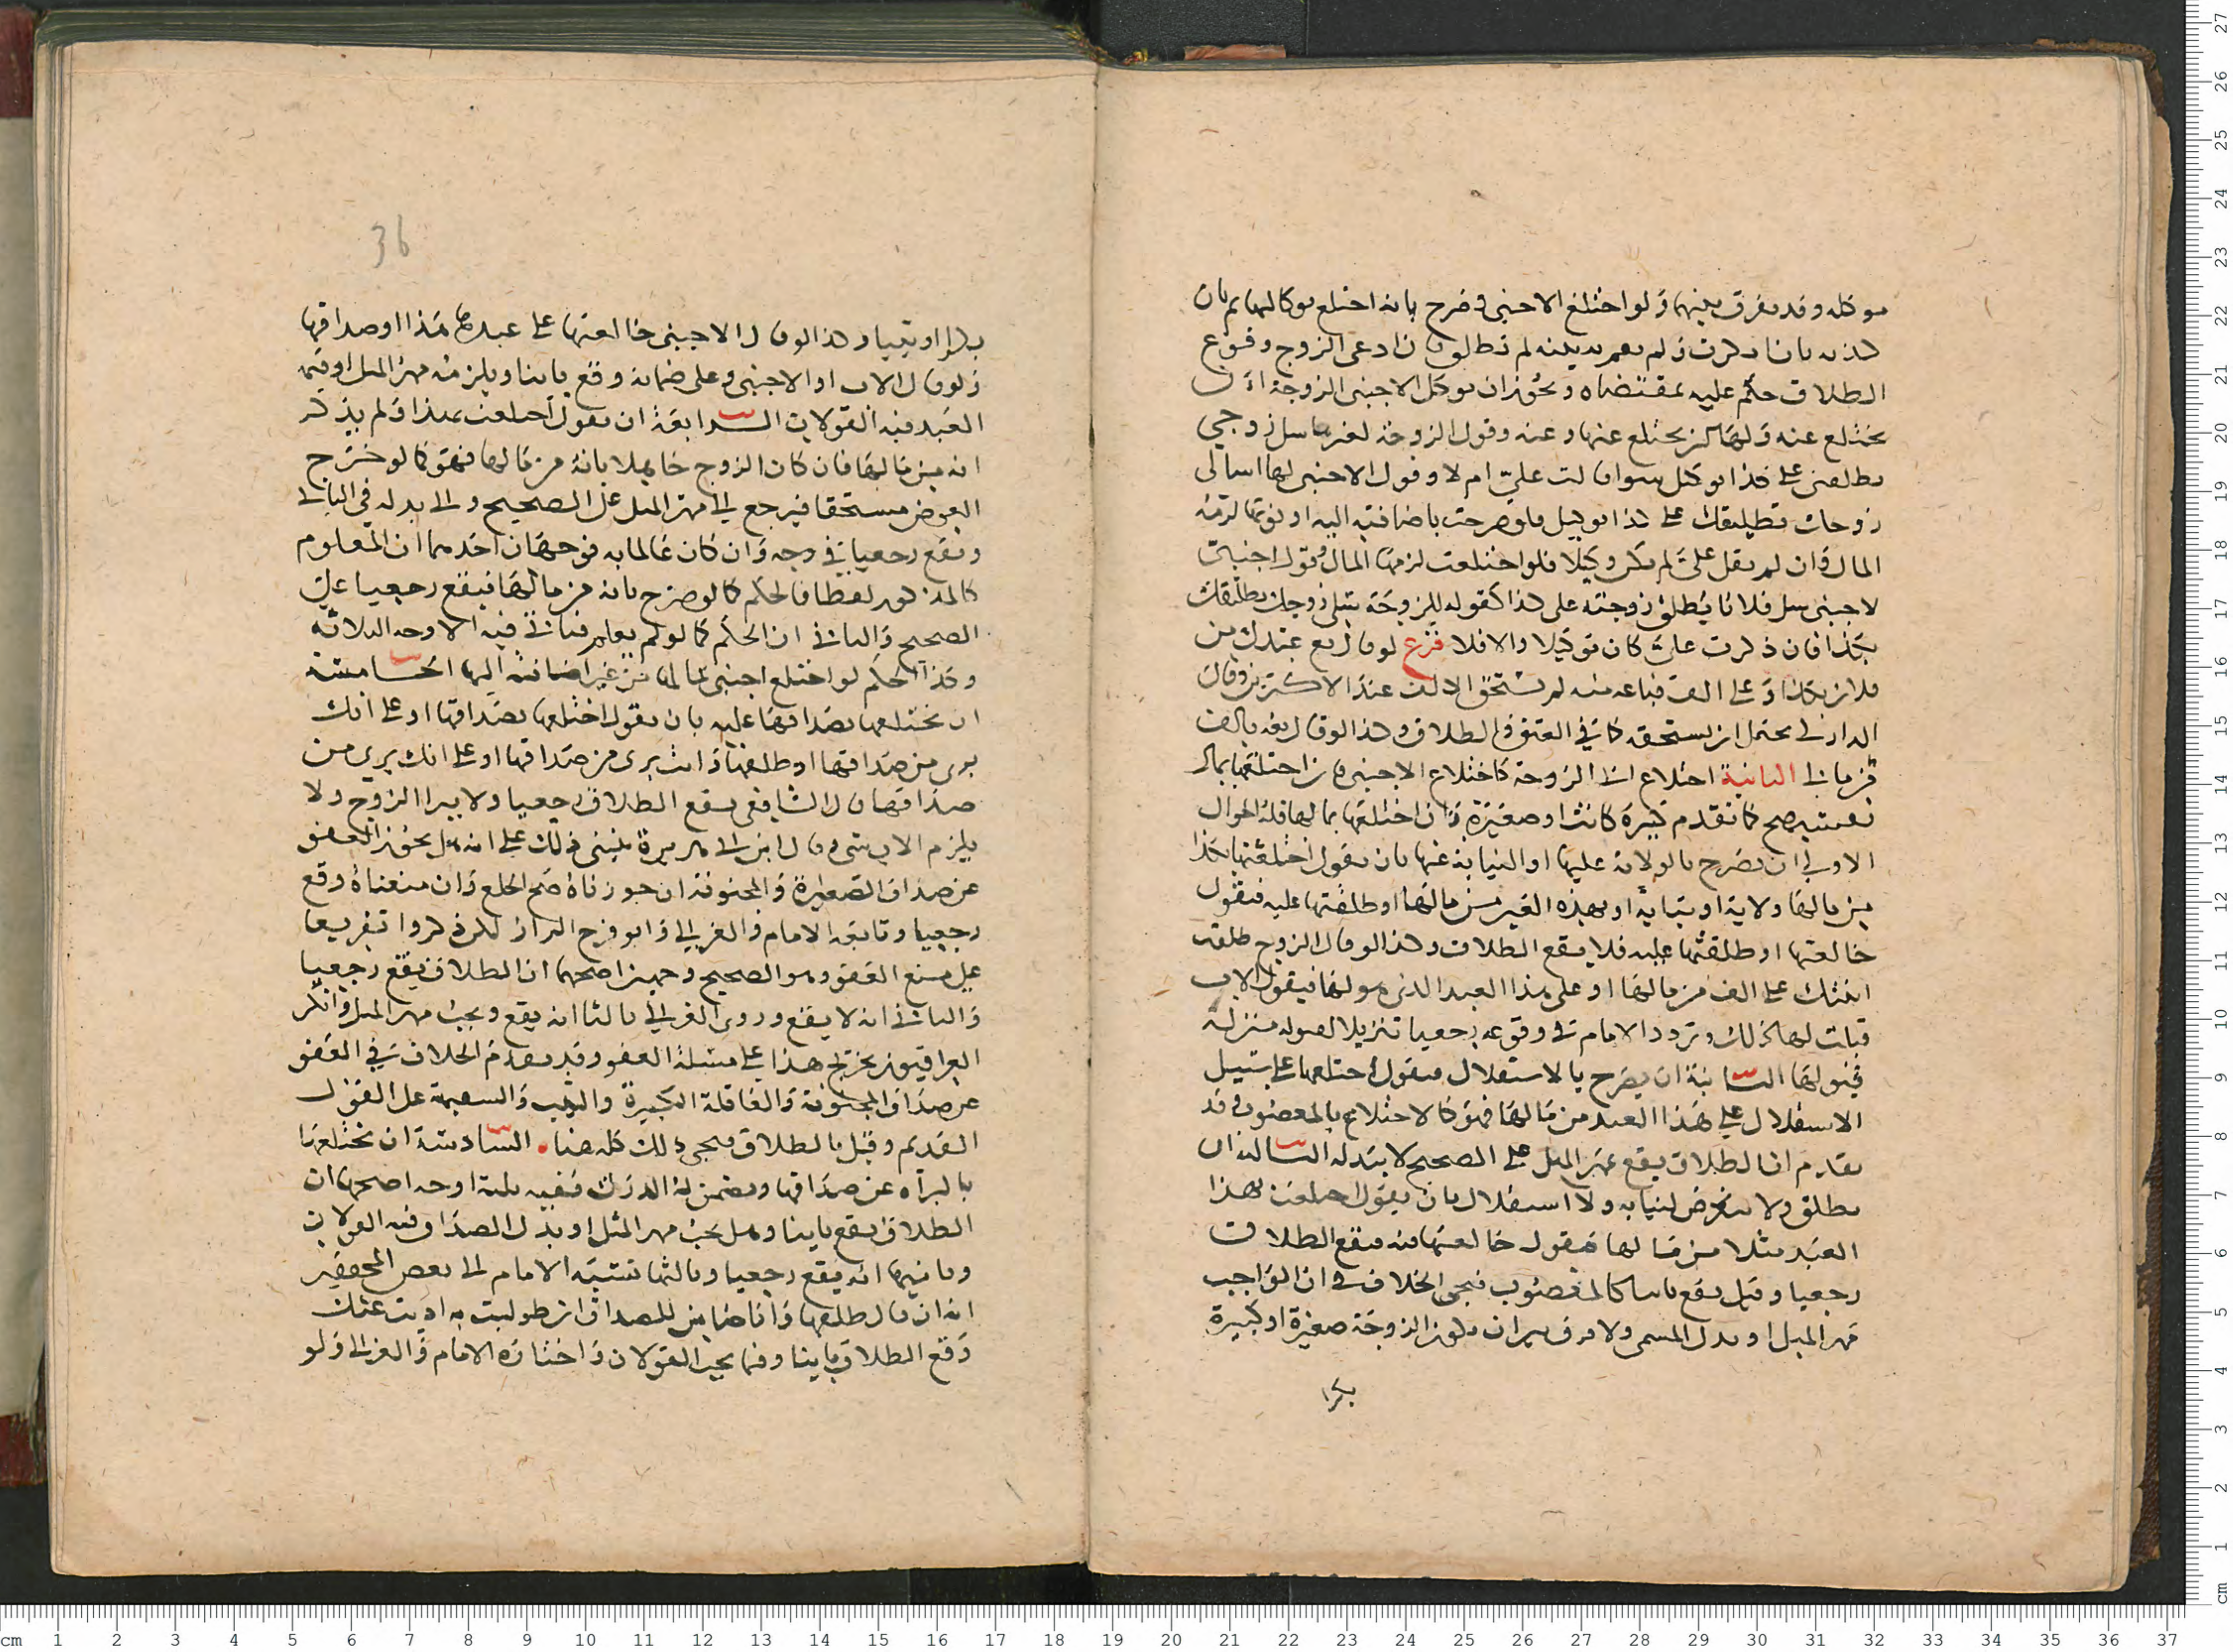 موكله وقد يفرق بينهما ولو اختلع الاجنبي وصرح بانه اختلع بوكالتها ثم بان
كذبه بان انكرت ولم يقم به بينه لم تطلق فان ادعى الزوج وقوع
الطلاق حكم عليه بمقتضاه ويجوز ان يوكل الاجنبي الزوجة ان
تختلع عنه ولها ان تختلع عنها وعنه وقول الزوجة لغيرها سل زوجي
يطلقني على كذا توكيل سوا قالت علي ام لا وقول الاجنبي لها اسالي
زوجك تطليقك على كذا توكيل فلو صرحت باضافته اليه او نوتها لزمه
المال وان لم يقل علي لم يكن توكيلا فلو اختلعت لزمها المال وقول اجنبي
لاجنبي سل فلانا يطلق زوجته على كذا كقوله للزوجة سلي زوجك يطلقك
بكذا فان ذكرت علي كان توكيلا والا فلا فرع لو قال بع عبدك من
فلان بكذا وعلي الف فباعه منه لم يستحق الالف عند الاكثرين وقال
الداركي يحتمل ان يستحقه كما في العتق والطلاق وكذا لو قال بعه بالف
في مالي الثانية اختلاع اب الزوجة كاختلاع الاجنبي فان اختلعها بمال
نفسه صح كما تقدم كبيرة كانت او صغيرة وان اختلعها بما لها فله احوال
الاولى ان يصرح بالولاية عليها او النيابة عنها بان يقول اختلعتها بكذا
من مالها ولاية او نيابة او بهذه العين من مالها او طلقتها عليه فيقول
خالعتها او طلقتها عليه فلا يقع الطلاق وكذا لو قال الزوج طلقت
ابنتك على الف من مالها او على هذا العبد الذي هو لها فيقول الاب
قبلت لها كذلك وتردد الامام في وقوعه رجعيا تنزيلا لقوله منزلة
قبولها الثانية ان يصرح بالاستقلال فيقول اختلعها على سبيل
الاستقلال على هذا العبد من مالها فهو كالاختلاع بالمغصوب وقد
تقدم ان الطلاق يقع بمهر المثل على الصحيح لا ببدله الثالثة ان
يطلق ولا يتعرض لنيابة ولا استقلال بان يقول اختلعت بهذا
العبد مثلا من مالها فيقول خالعتها منه فيقع الطلاق
رجعيا وقيل يقع باينا كالمغصوب فيجي الخلاف في ان الواجب
مهر المثل او بدل المسمى ولا فرق بين ان تكون الزوجة صغيرة او كبيرة
بكرا
36
بكرا او ثيبا وكذا لو قال الاجنبي خالعتها على عبدها هذا او صداقها
ولو قال الاب او الاجنبي وعلى ضمانه وقع باينا ويلزمه مهر المثل او قيمة
العبد فيه القولان الرابعة ان يقول اختلعت بهذا ولم يذكر
انه من مالها فان كان الزوج جاهلا بانه من مالها فهو كما لو خرج
العوض مستحقا فيرجع الى مهر المثل على الصحيح والى بدله في الثاني
ويقع رجعيا في وجه وان كان عالما به فوجهان احدهما ان المعلوم
كالمذكور لفظا فالحكم كما لو صرح بانه من مالها فيقع رجعيا على
الصحيح والثاني ان الحكم كما لو لم يعلم فياتي فيه الاوجه الثلاثة
وكذا الحكم لو اختلع اجنبي بما لها من غير اضافته اليها الخامسة
ان يختلعها بصداقها عليه بان يقول اختلعها بصداقها او على انك
بري من صداقها او طلقها وانت بري من صداقها او على انك بري من
صداقها قال الشافعي يقع الطلاق رجعيا ولا يبرا الزوج ولا
يلزم الاب شي وقال ابن ابي هريرة يبنى ذلك على انه هل يجوز العفو
عن صداق الصغيرة والمجنونة ان جوزناه صح الخلع وان منعناه وقع
رجعيا وتابعه الامام والغزالي وابو فرج البزاز لكن ذكروا تفريعا
على منع العفو وهو الصحيح وجهين اصحهما ان الطلاق يقع رجعيا
والثاني انه لا يقع وروى الغزالي ثالثا انه يقع ويجب مهر المثل وانكر
العراقيون تخريج هذا على مسئلة العفو وقد تقدم الخلاف في العفو
عن صداق المجنونة والعاقلة الكبيرة والثيب والسفيهة على القول
القديم وقبل بالطلاق فيجي ذلك كله هنا السادسة ان يختلعها
بالبراة عن صداقها ويضمن له الدرك ففيه ثلثة اوجه اصحها ان
الطلاق يقع باينا وهل يجب مهر المثل او بدل الصداق فيه القولان
وثانيها انه يقع رجعيا وثالثها نسبه الامام الى بعض المحققين
انه ان قال طلقها وانا ضامن للصداق ان طولبت به اديت عنك
وقع الطلاق باينا وفيما يجب القولان واختاره الامام والغزالي ولو